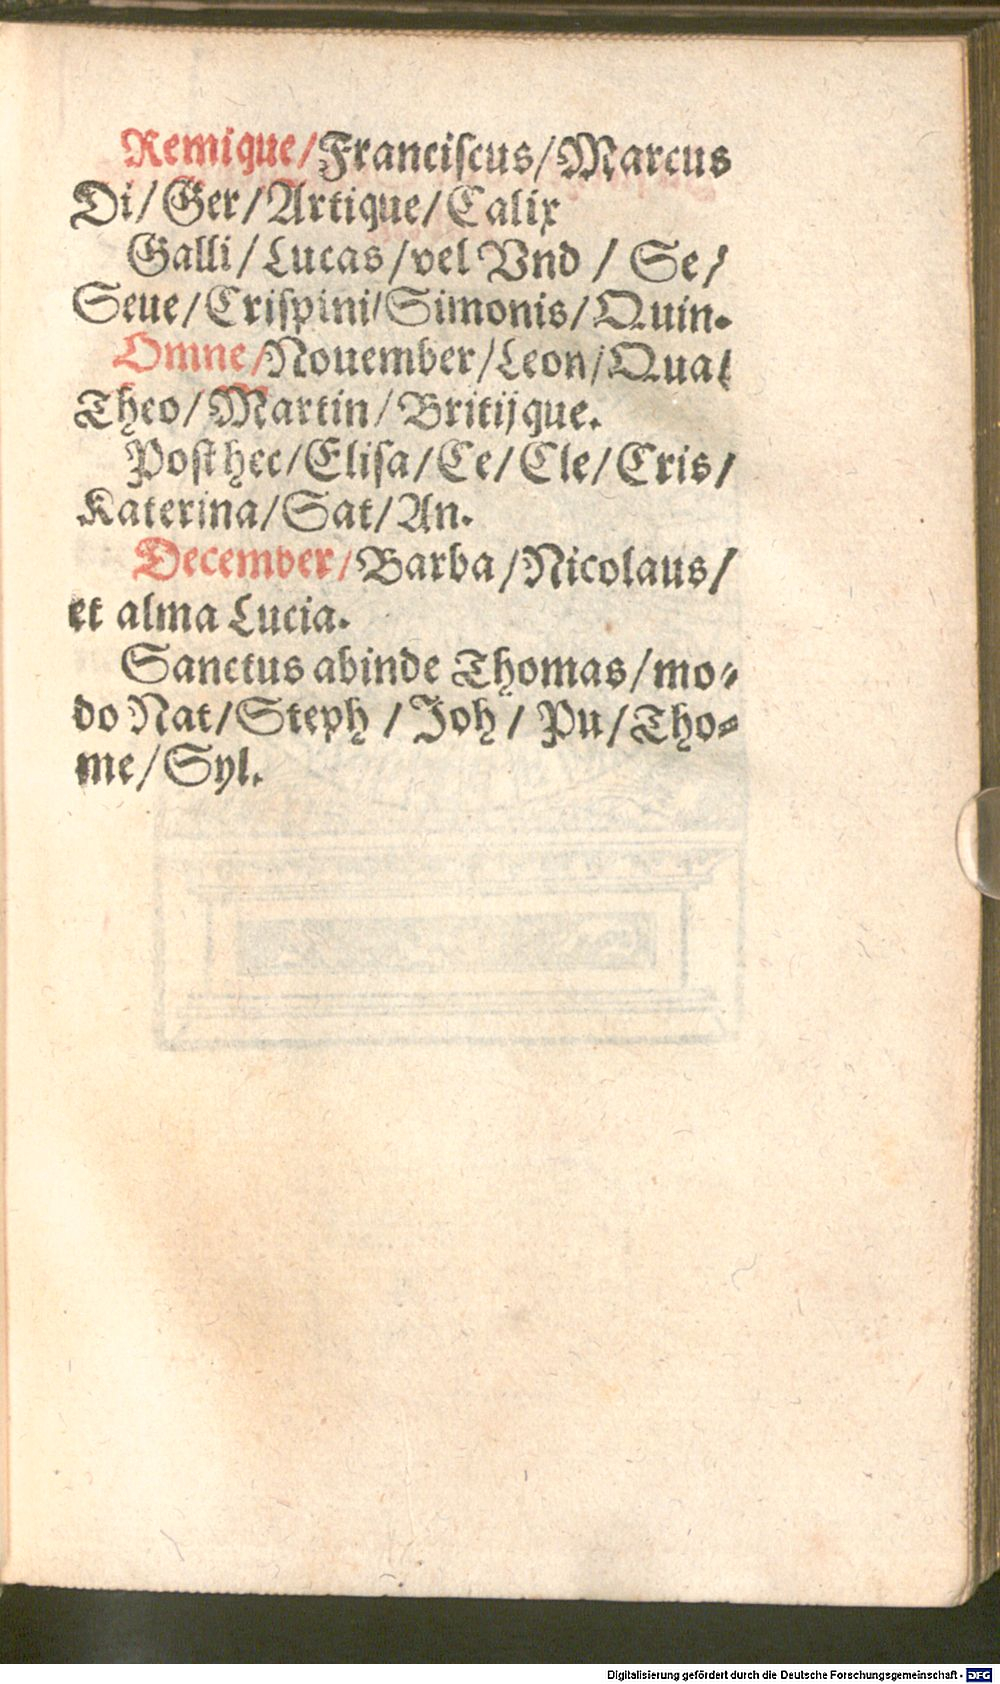 Remique/Franciſcus/Marcus
Di/Ger/Artique/Calix
Galli/Lucas/vel Vnd / Se/
Seue/Criſpini/Simonis/Quin.
Omne/Nouember/Leon/Qua/
Theo/Martin/Britijque.
Poſt hec/Eliſa/Ce/Cle/Cris/
Katerina/Sat/An.
December/Barba/Nicolaus/
et alma Lucia.
Sanctus abinde Thomas/mo-
do Nat/Steph / Joh / Pu/Tho-
me/Syl.
Digitalisierung gefördert durch die Deutsche Forschungsgemeinschaft - DFG